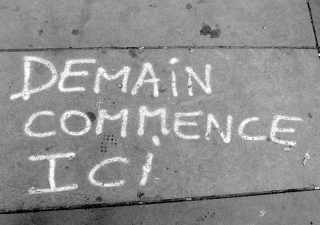 DEMAiN
COMMENCE
ICi